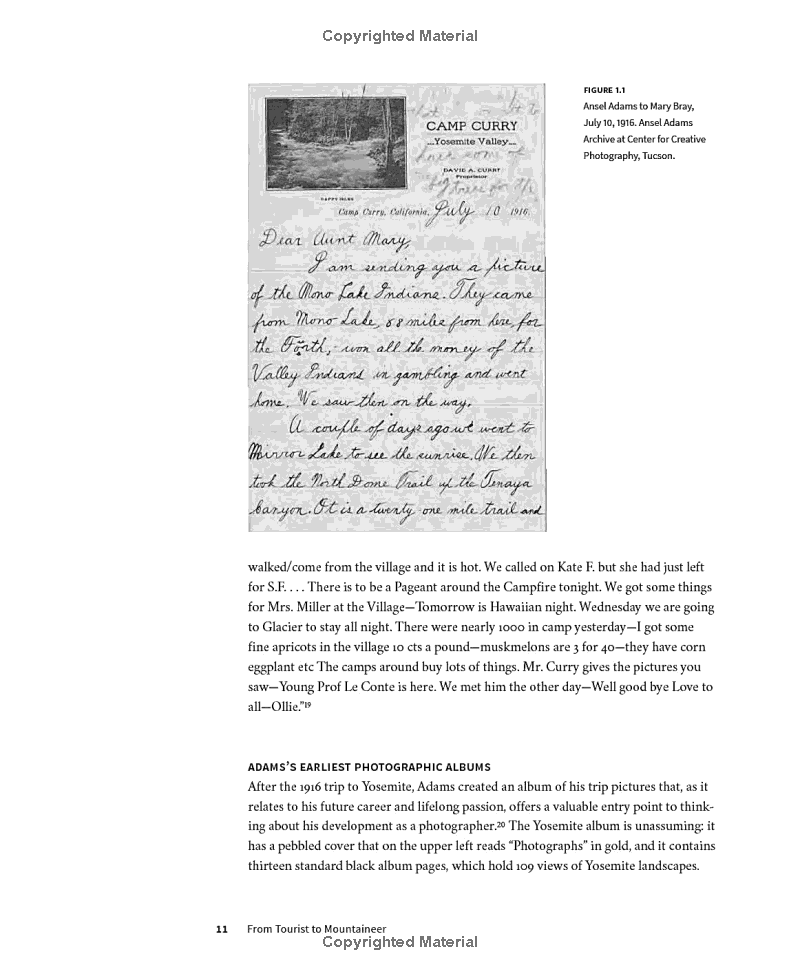 Copyrighted Material
CAMP CURRY
Yosemite Valley
DAVID A. CURRY
Proprietor
HAPPY ISLES
Camp Curry, California, July 10 1916.
Dear Aunt Mary,
I am sending you a picture
of the Mono Lake Indians. They came
from Mono Lake, 88 miles from here, for
the Forth, won all the money of the
Valley Indians in gambling and went
home. We saw then on the way.
A couple of days ago we went to
Mirror Lake to see the sunrise. We then
took the North Dome Trail up the Tenaya
Canyon. It is a twenty one mile trail and
FIGURE 1.1
Ansel Adams to Mary Bray,
July 10, 1916. Ansel Adams
Archive at Center for Creative
Photography, Tucson.
walked/come from the village and it is hot. We called on Kate F. but she had just left
for S.F. . . . There is to be a Pageant around the Campfire tonight. We got some things
for Mrs. Miller at the Village—Tomorrow is Hawaiian night. Wednesday we are going
to Glacier to stay all night. There were nearly 1000 in camp yesterday—I got some
fine apricots in the village 10 cts a pound—muskmelons are 3 for 40—they have corn
eggplant etc The camps around buy lots of things. Mr. Curry gives the pictures you
saw—Young Prof Le Conte is here. We met him the other day—Well good bye Love to
all—Ollie.”19
ADAMS’S EARLIEST PHOTOGRAPHIC ALBUMS
After the 1916 trip to Yosemite, Adams created an album of his trip pictures that, as it
relates to his future career and lifelong passion, offers a valuable entry point to think-
ing about his development as a photographer.20 The Yosemite album is unassuming: it
has a pebbled cover that on the upper left reads “Photographs” in gold, and it contains
thirteen standard black album pages, which hold 109 views of Yosemite landscapes.
11 From Tourist to Mountaineer
Copyrighted Material